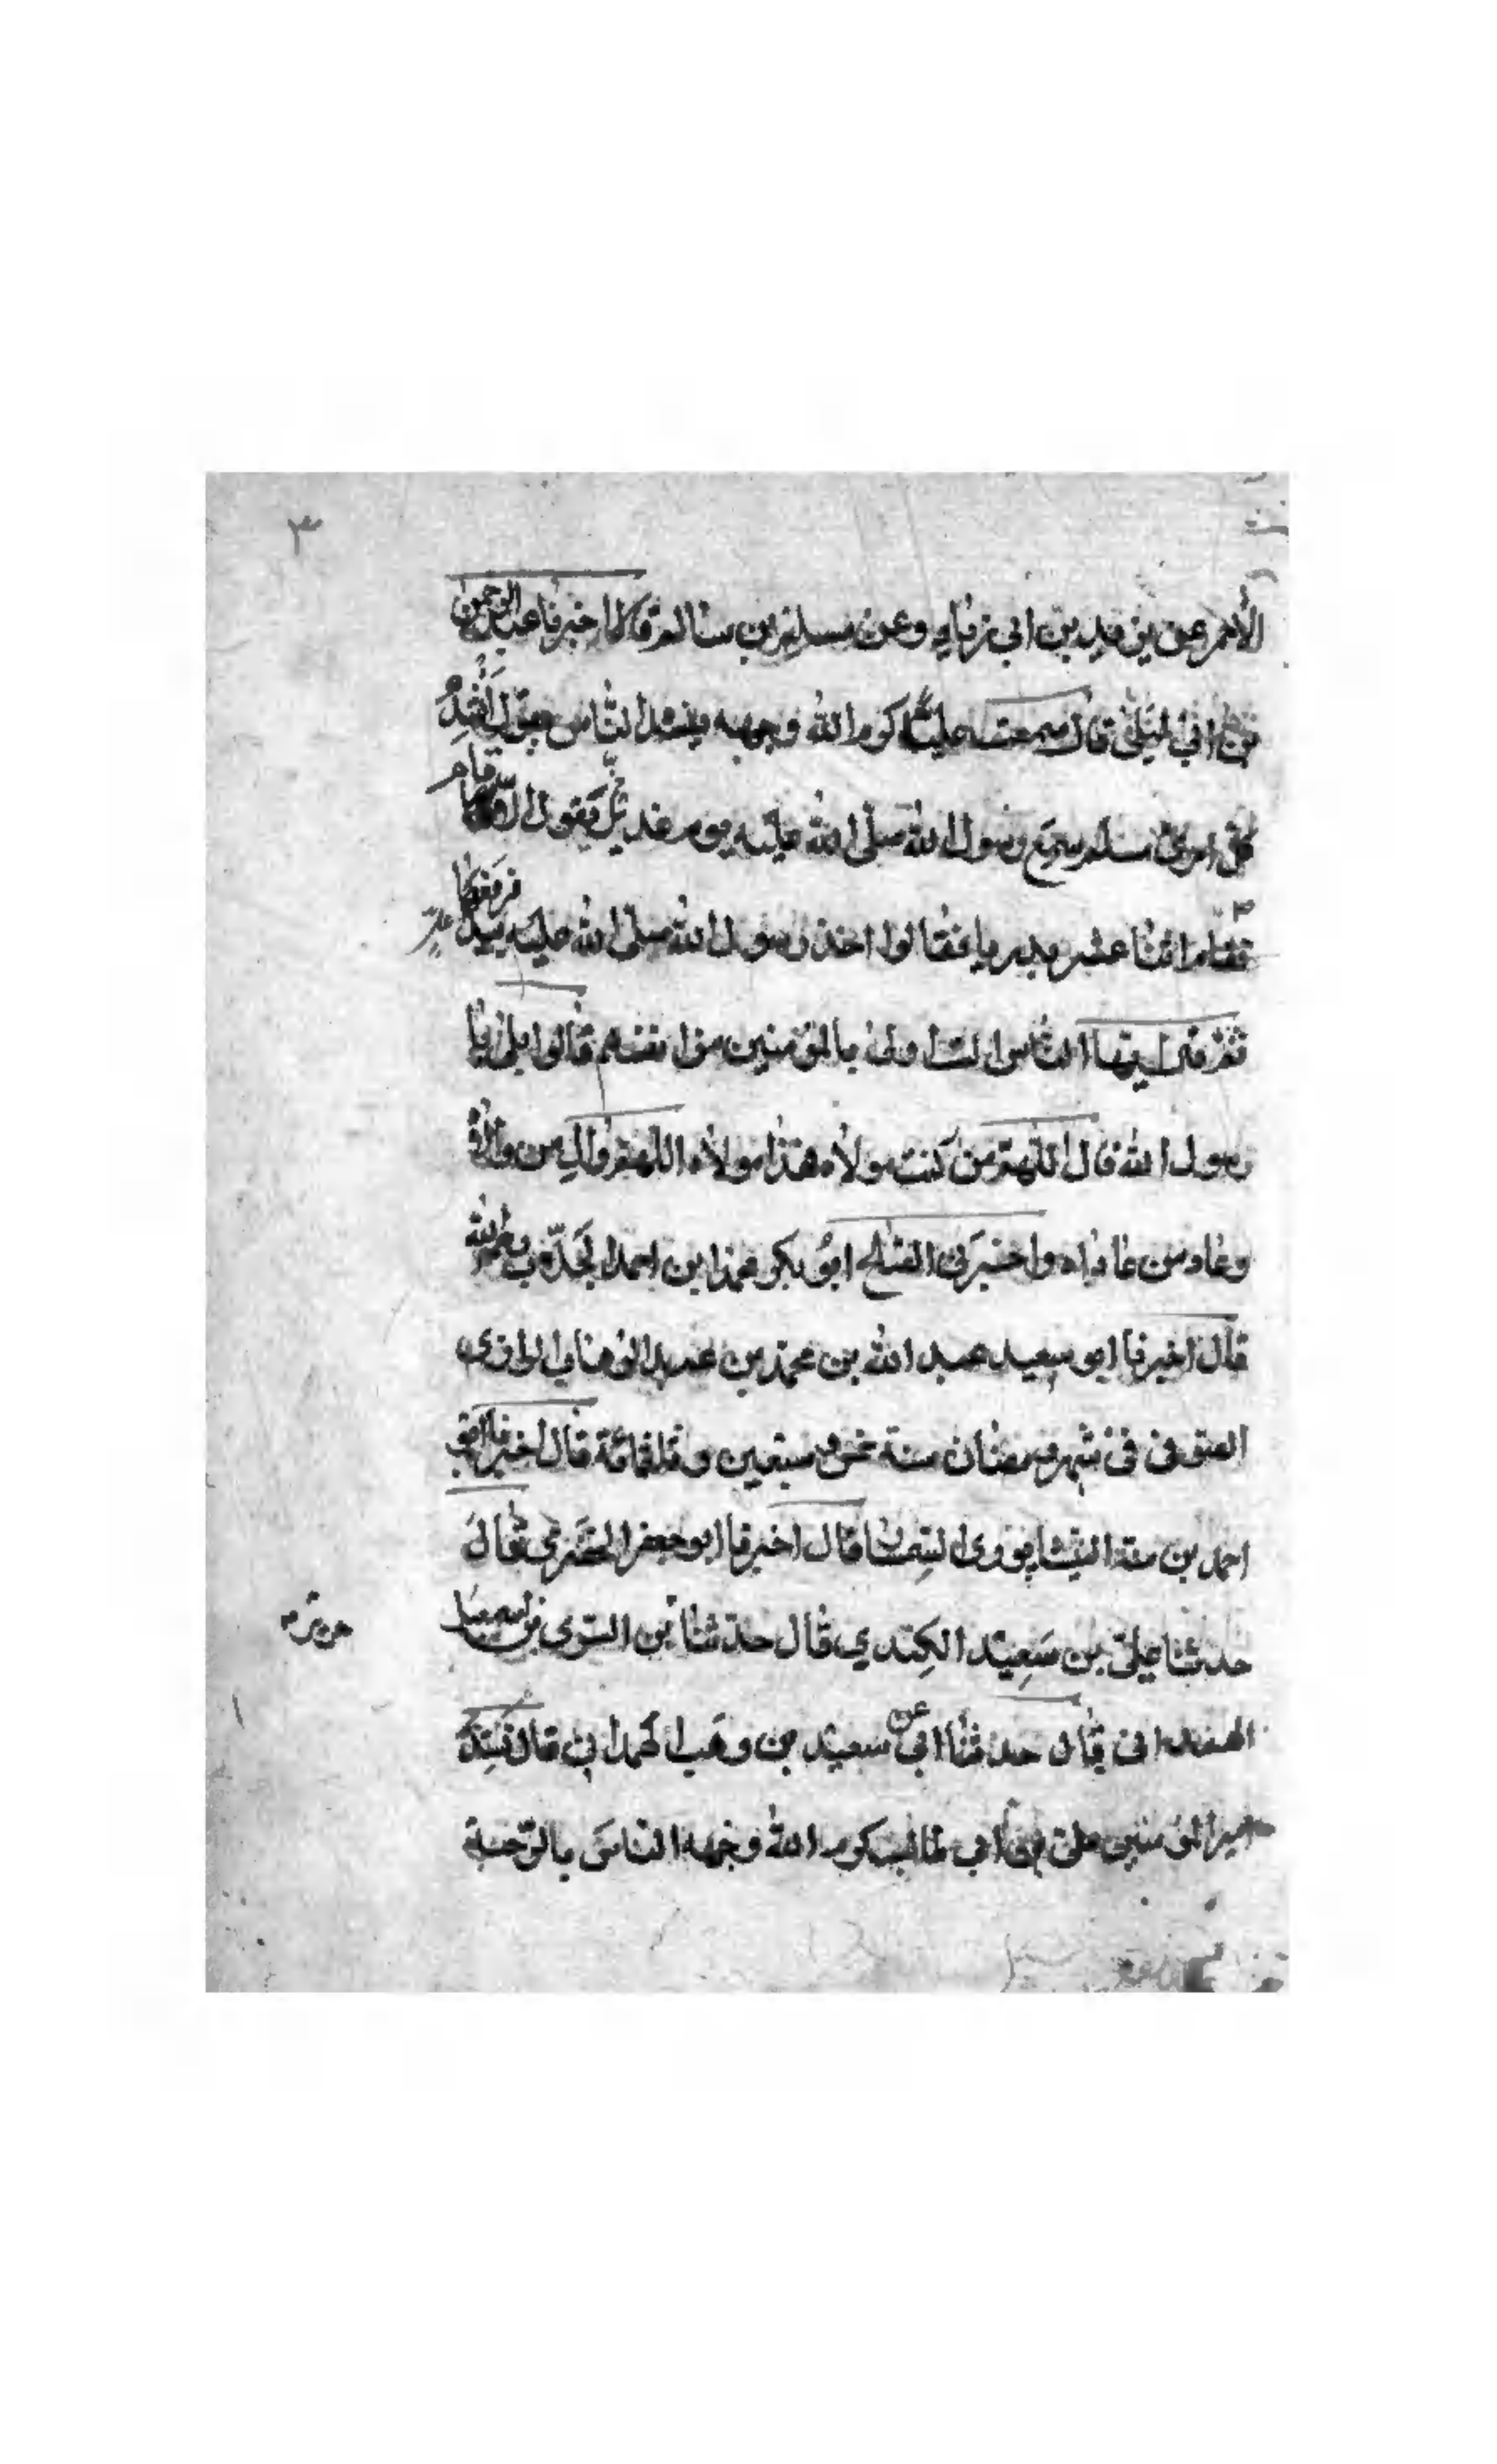 ٣
عن يزيد بن ابي زياد وعن مسلم بن سالم قالا اخبرنا عبدالرحمن
بن ابي ليلى قال سمعت عليا كرم الله وجهه ينشد الناس يقول انشد
كل امرئ مسلم سمع رسول الله صلى الله عليه يوم غدير خم يقول الا قام
فقام اثنا عشر بدريا فقالوا اخذ رسول الله صلى الله عليه بيد علي فرفعها
ثم قال ايها الناس الست اولى بالمؤمنين من انفسهم قالوا بلى يا
رسول الله قال اللهم من كنت مولاه فهذا مولاه اللهم وال من والاه
وعاد من عاداه واخبرني الشيخ ابو بكر محمد بن احمد رحمه الله
قال اخبرنا ابو سعيد عبد الله بن محمد بن عبد الوهاب الرازي
الصوفي في شهر رمضان سنة وسبعين وثلثمائة قال اخبرنا ابو
احمد بن النيسابوري قال اخبرنا ابو جعفر الحضرمي قال
حدثنا علي بن سعيد الكندي قال حدثنا بن السري بن
الهمداني قال حدثنا ابي عن سعيد بن وهب الهمداني قال نشد
امير المؤمنين علي بن ابي طالب كرم الله وجهه الناس بالرحبة